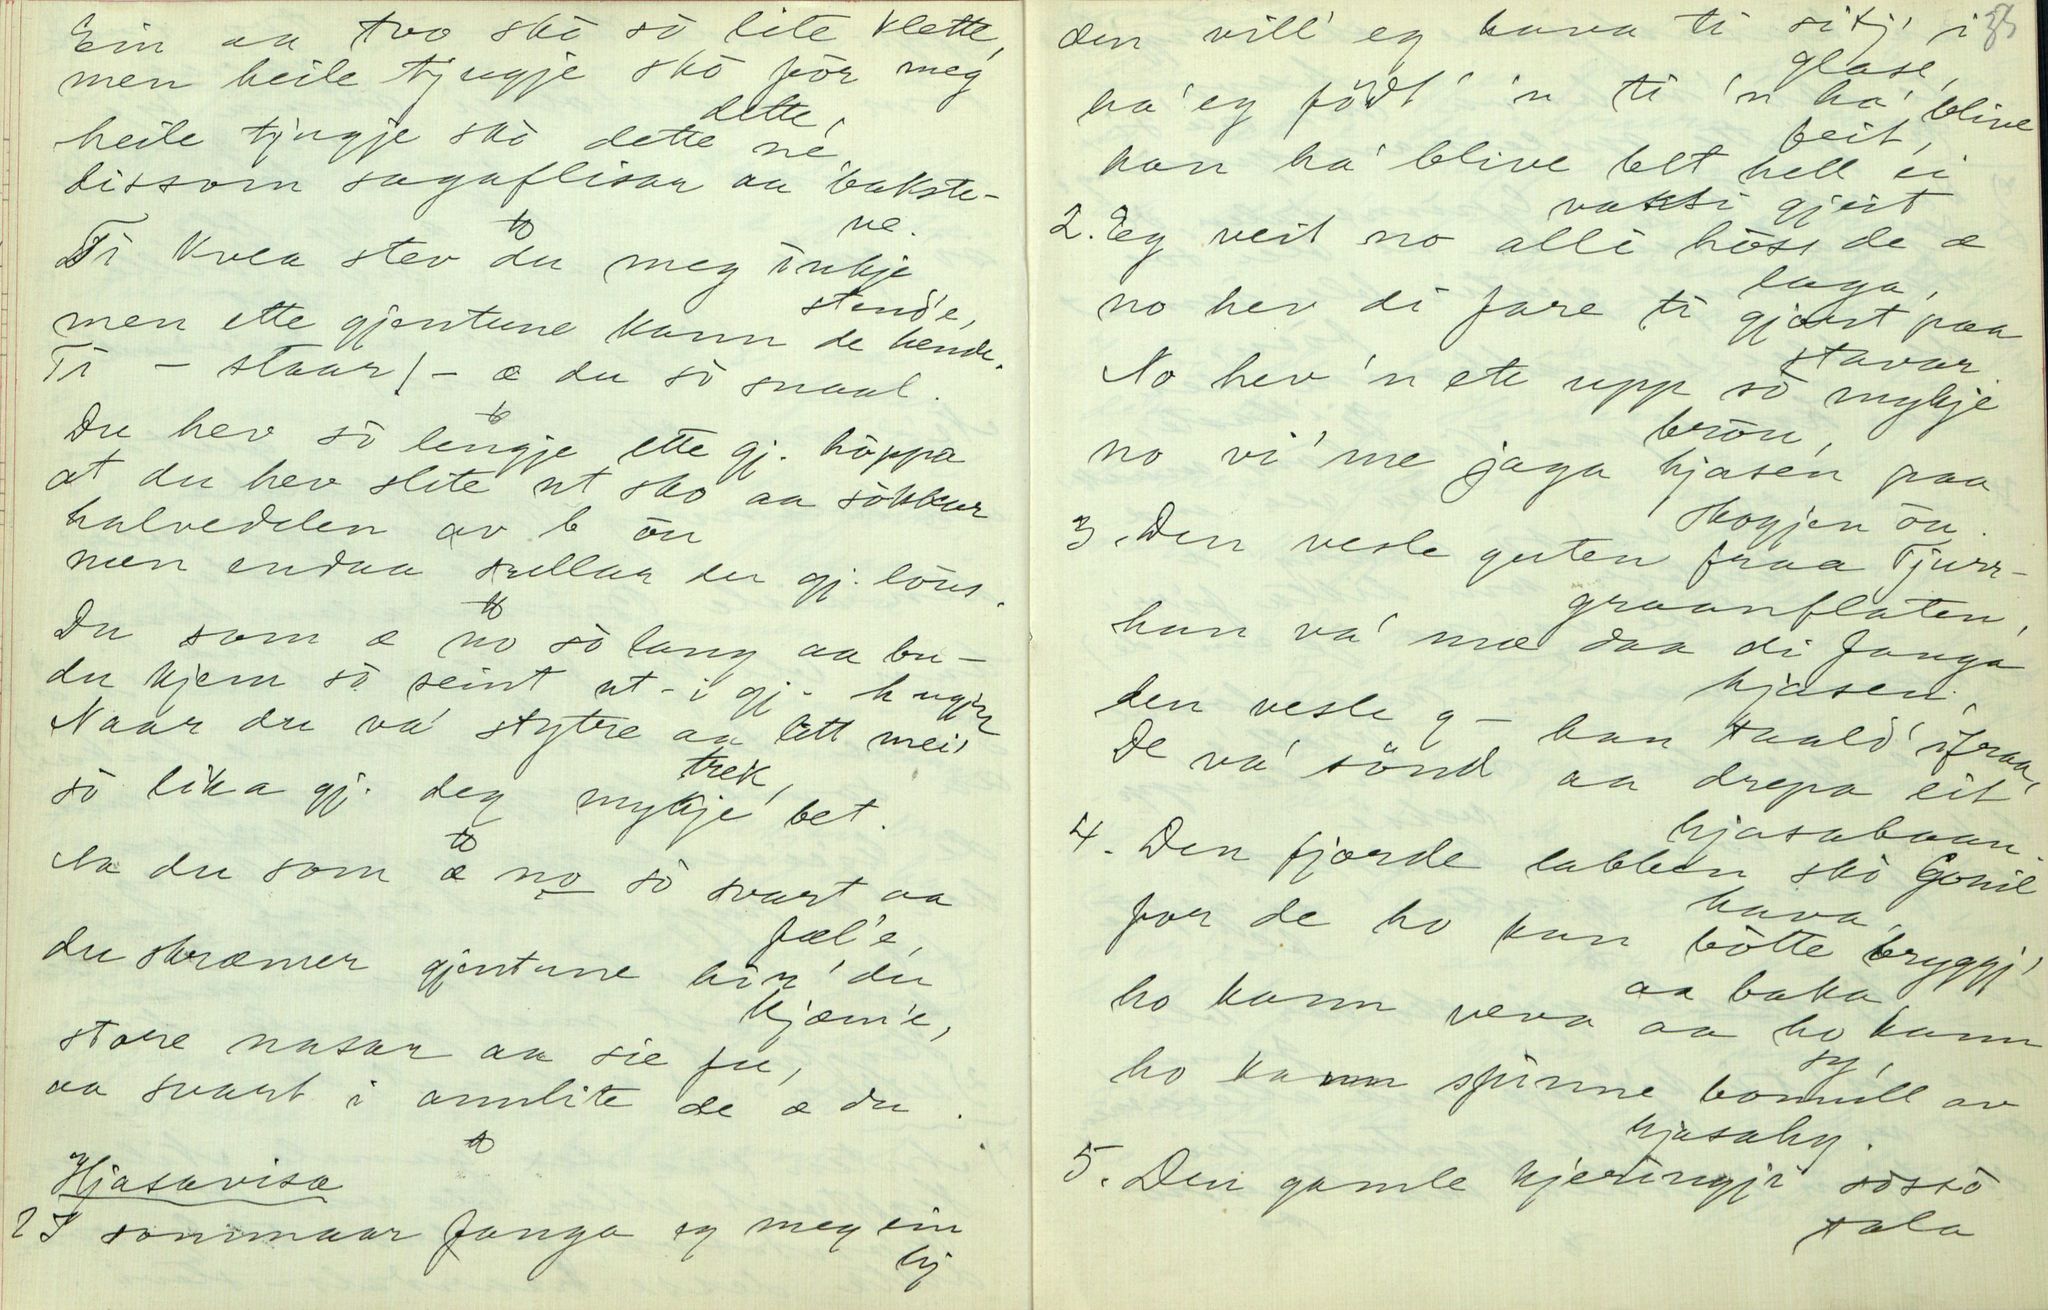 Ein aa tvo skò sò lite klette,
men heile tjugje skò fòr meg
dette,
heile tjugje skò dette né
dissom sagaflisaa aa bakste-
ne.
Ti kvea stev du meg inkje
stend'e,
men ette gjentune kann de hende.
Ti - staar! - æ du sò snaal.
Du hev sò lengje ette gj. hòppa
at du hev slite ut sko aa sòkkur
halvedelen av b òu
men endaa rullar du gj. lòus.
Du som æ no sò lang aa bu-
du kjem sò seint ut - i gj - hugjen
Naar du va' stytre aa lett mei'
trek,
sò lika gj. deg mykje' bet.
Aa du som æ no sò svart aa
fæl'e,
du skræmer gjentune hin' du
kjæm'e,
store nasar aa sie fu,
aa svart i annlite de æ du.
Hjasavisa
1 I sommaar fanga eg meg ein
hj
den vill' eg hava ti sitj' i
glase,
ha' eg födt 'n ti 'n ha' blive
feit,
kan ha' blive belt hell ei
vaksi gjeit
2. Eg veit no alli hòss de æ
laga,
no hev di fare ti gjært paa
stavar
No hev 'n ete upp sò mykje
bròu,
no vi' me jaga hjasen paa
skogjen òu.
3. Den vesle guten fraa Tjurr-
graanflaten,
han va' mæ daa di fanga
hjasen,
den vesle g - han taald' ifraa,
De va' sönd aa drepa eit
hjasabaan.
4. Den fjorde labben skò Gonil
hava,
for de ho kan bòtte bryggj'
aa baka,
ho kann veva aa ho kann
sy,
ho kann spinne bomull av
hjasahy.
5. Den gamle kjeringji sòssò
tala